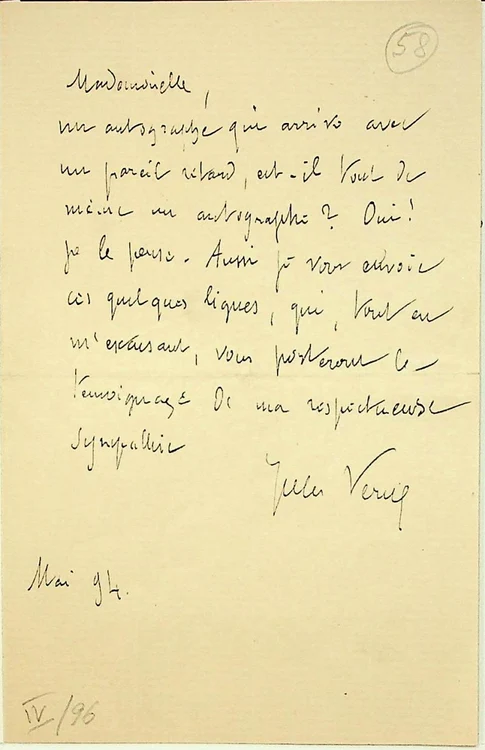 58
Mademoiselle,
un autographe qui arrive avec
un pareil retard, est-il tout de
même un autographe ? Oui !
je le pense. Aussi je vous envoie
ces quelques lignes, qui, tout en
m'excusant, vous porteront le
témoignage de ma respectueuse
sympathie
Jules Verne
Mai 94.
IV/96